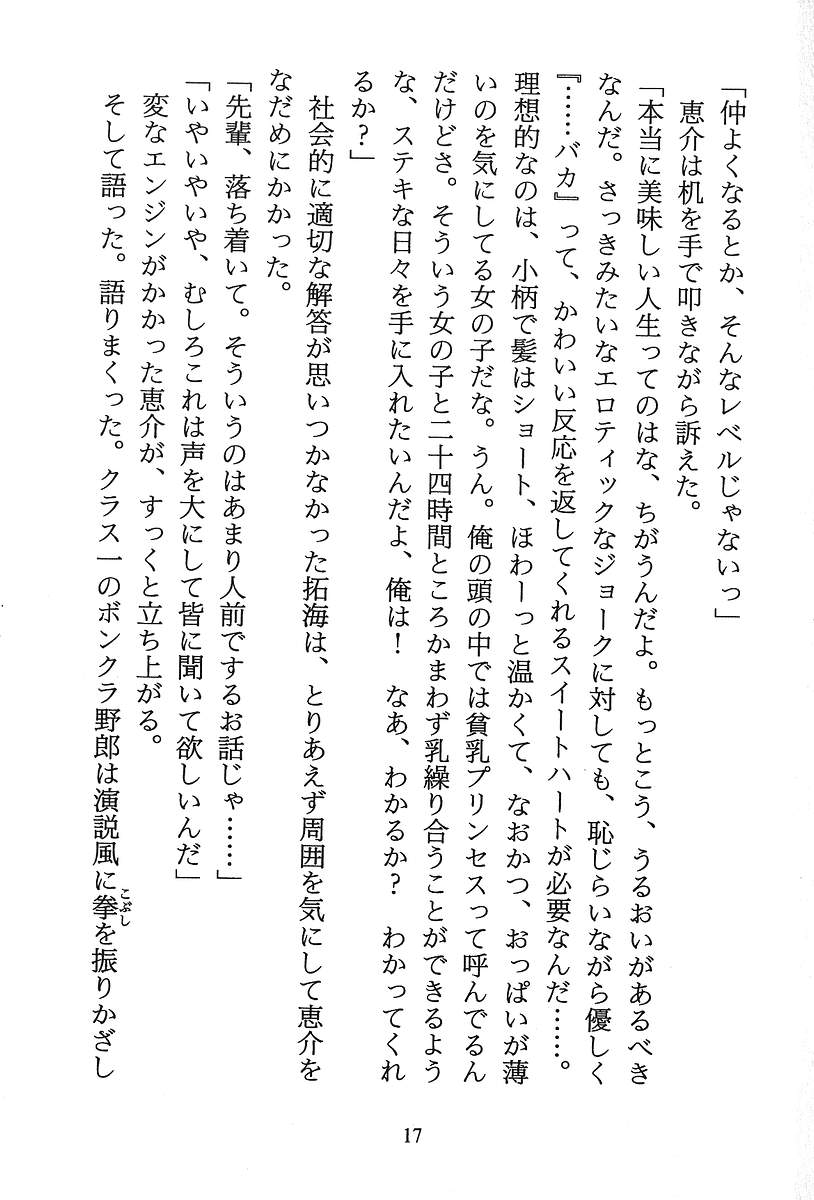 「仲よくなるとか、そんなレベルじゃないっ」
恵介は机を手で叩きながら訴えた。
「本当に美味しい人生ってのはな、ちがうんだよ。もっとこう、うるおいがあるべき
なんだ。さっきみたいなエロティックなジョークに対しても、恥じらいながら優しく
『……バカ』って、かわいい反応を返してくれるスイートハートが必要なんだ……。
理想的なのは、小柄で髪はショート、ほわーっと温かくて、なおかつ、おっぱいが薄
いのを気にしてる女の子だな。うん。俺の頭の中では貧乳プリンセスって呼んでるん
だけどさ。そういう女の子と二十四時間ところかまわず乳繰り合うことができるよう
な、ステキな日々を手に入れたいんだよ、俺は！　なあ、わかるか？　わかってくれ
るか？」
社会的に適切な解答が思いつかなかった拓海は、とりあえず周囲を気にして恵介を
なだめにかかった。
「先輩、落ち着いて。そういうのはあまり人前でするお話じゃ……」
「いやいやいや、むしろこれは声を大にして皆に聞いて欲しいんだ」
変なエンジンがかかった恵介が、すっくと立ち上がる。
そして語った。語りまくった。クラス一のボンクラ野郎は演説風に拳を振りかざし
こぶし
17